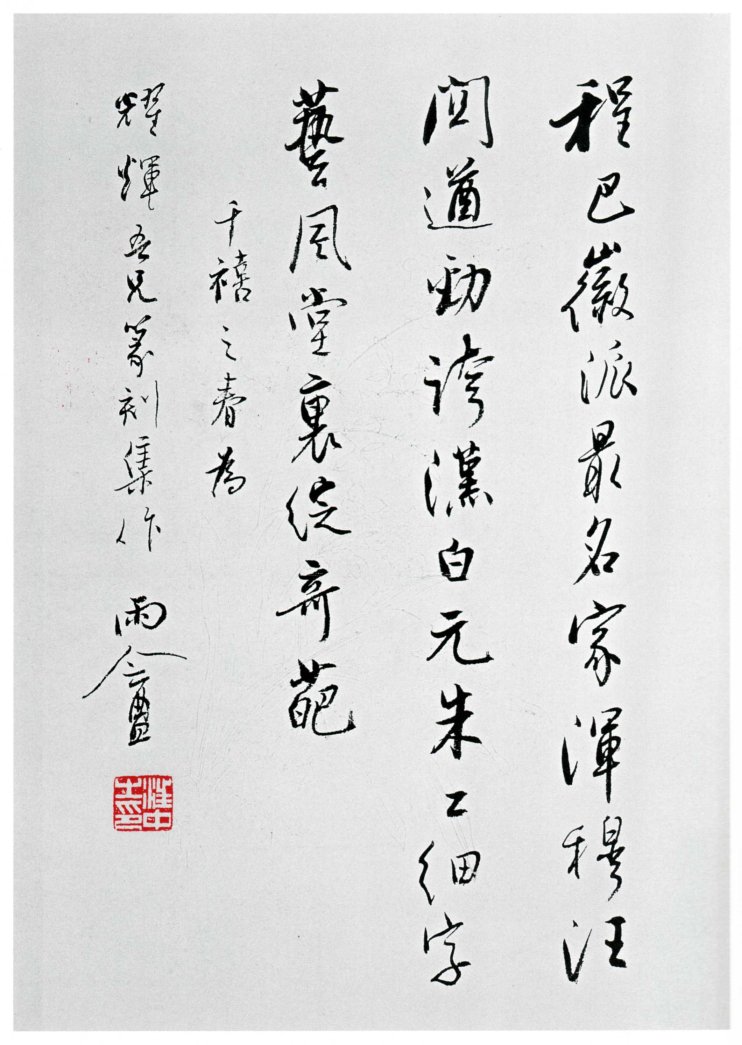 程巴徽派最名家渾穆汪
関遒勁誇漢白元朱工細字
藝風堂裏綻奇葩
千禧之春為
耀輝吾兄篆刻集作 雨盦
汪中之印